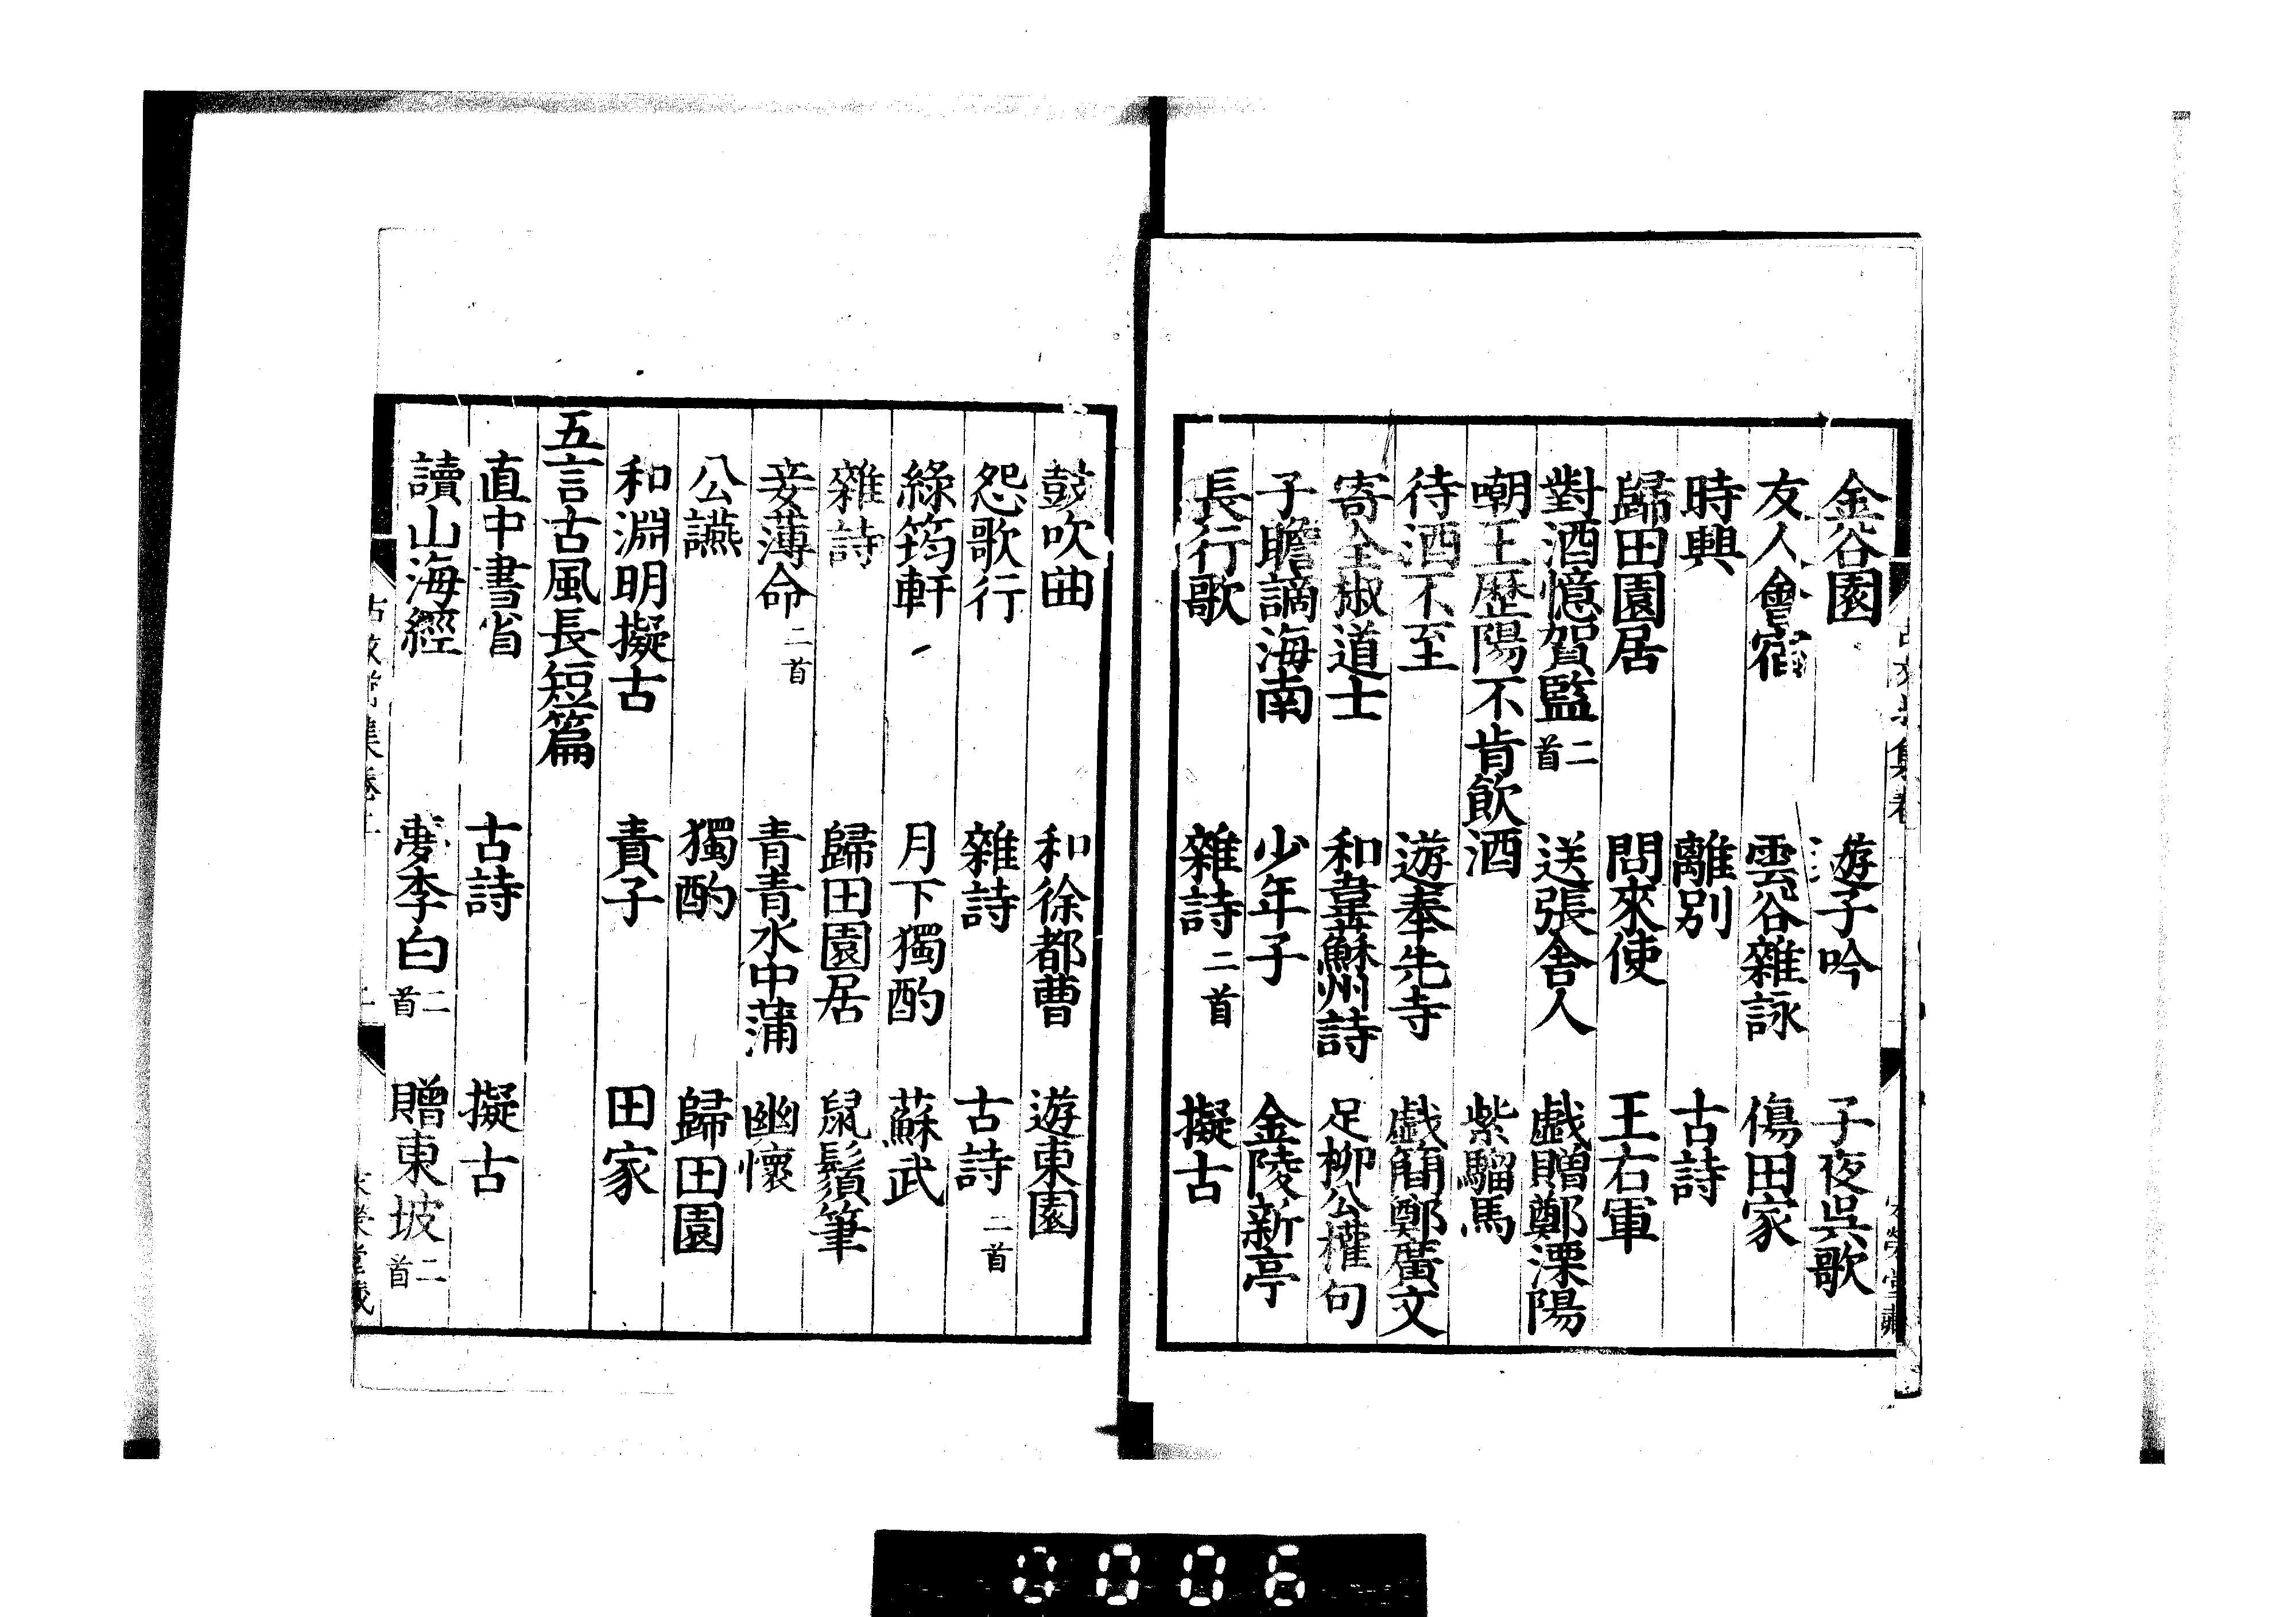 金谷園　遊子吟　子夜吳歌
友人會宿　雲谷雜詠　傷田家
時興　離別　古詩
歸田園居　問來使　王右軍
對酒憶賀監二首　送張舍人　戯贈鄭溧陽
嘲王歷陽不肯飲酒　紫騮馬
待酒不至　遊奉先寺　戯簡鄭廣文
寄全椒道士　和韋蘇州詩　足柳公權句
子瞻謫海南　少年子　金陵新亭
長行歌　雜詩二首　擬古
鼓吹曲　和徐都曹　遊東園
怨歌行　雜詩　古詩二首
綠筠軒　月下獨酌　蘇武
雜詩　歸田園居　鼠鬚筆
妾薄命二首　青青水中蒲　幽懷
公讌　獨酌　歸田園
和淵明擬古　責子　田家
五言古風長短篇
直中書省　古詩　擬古
讀山海經　夢李白二首　贈東坡二首
0006